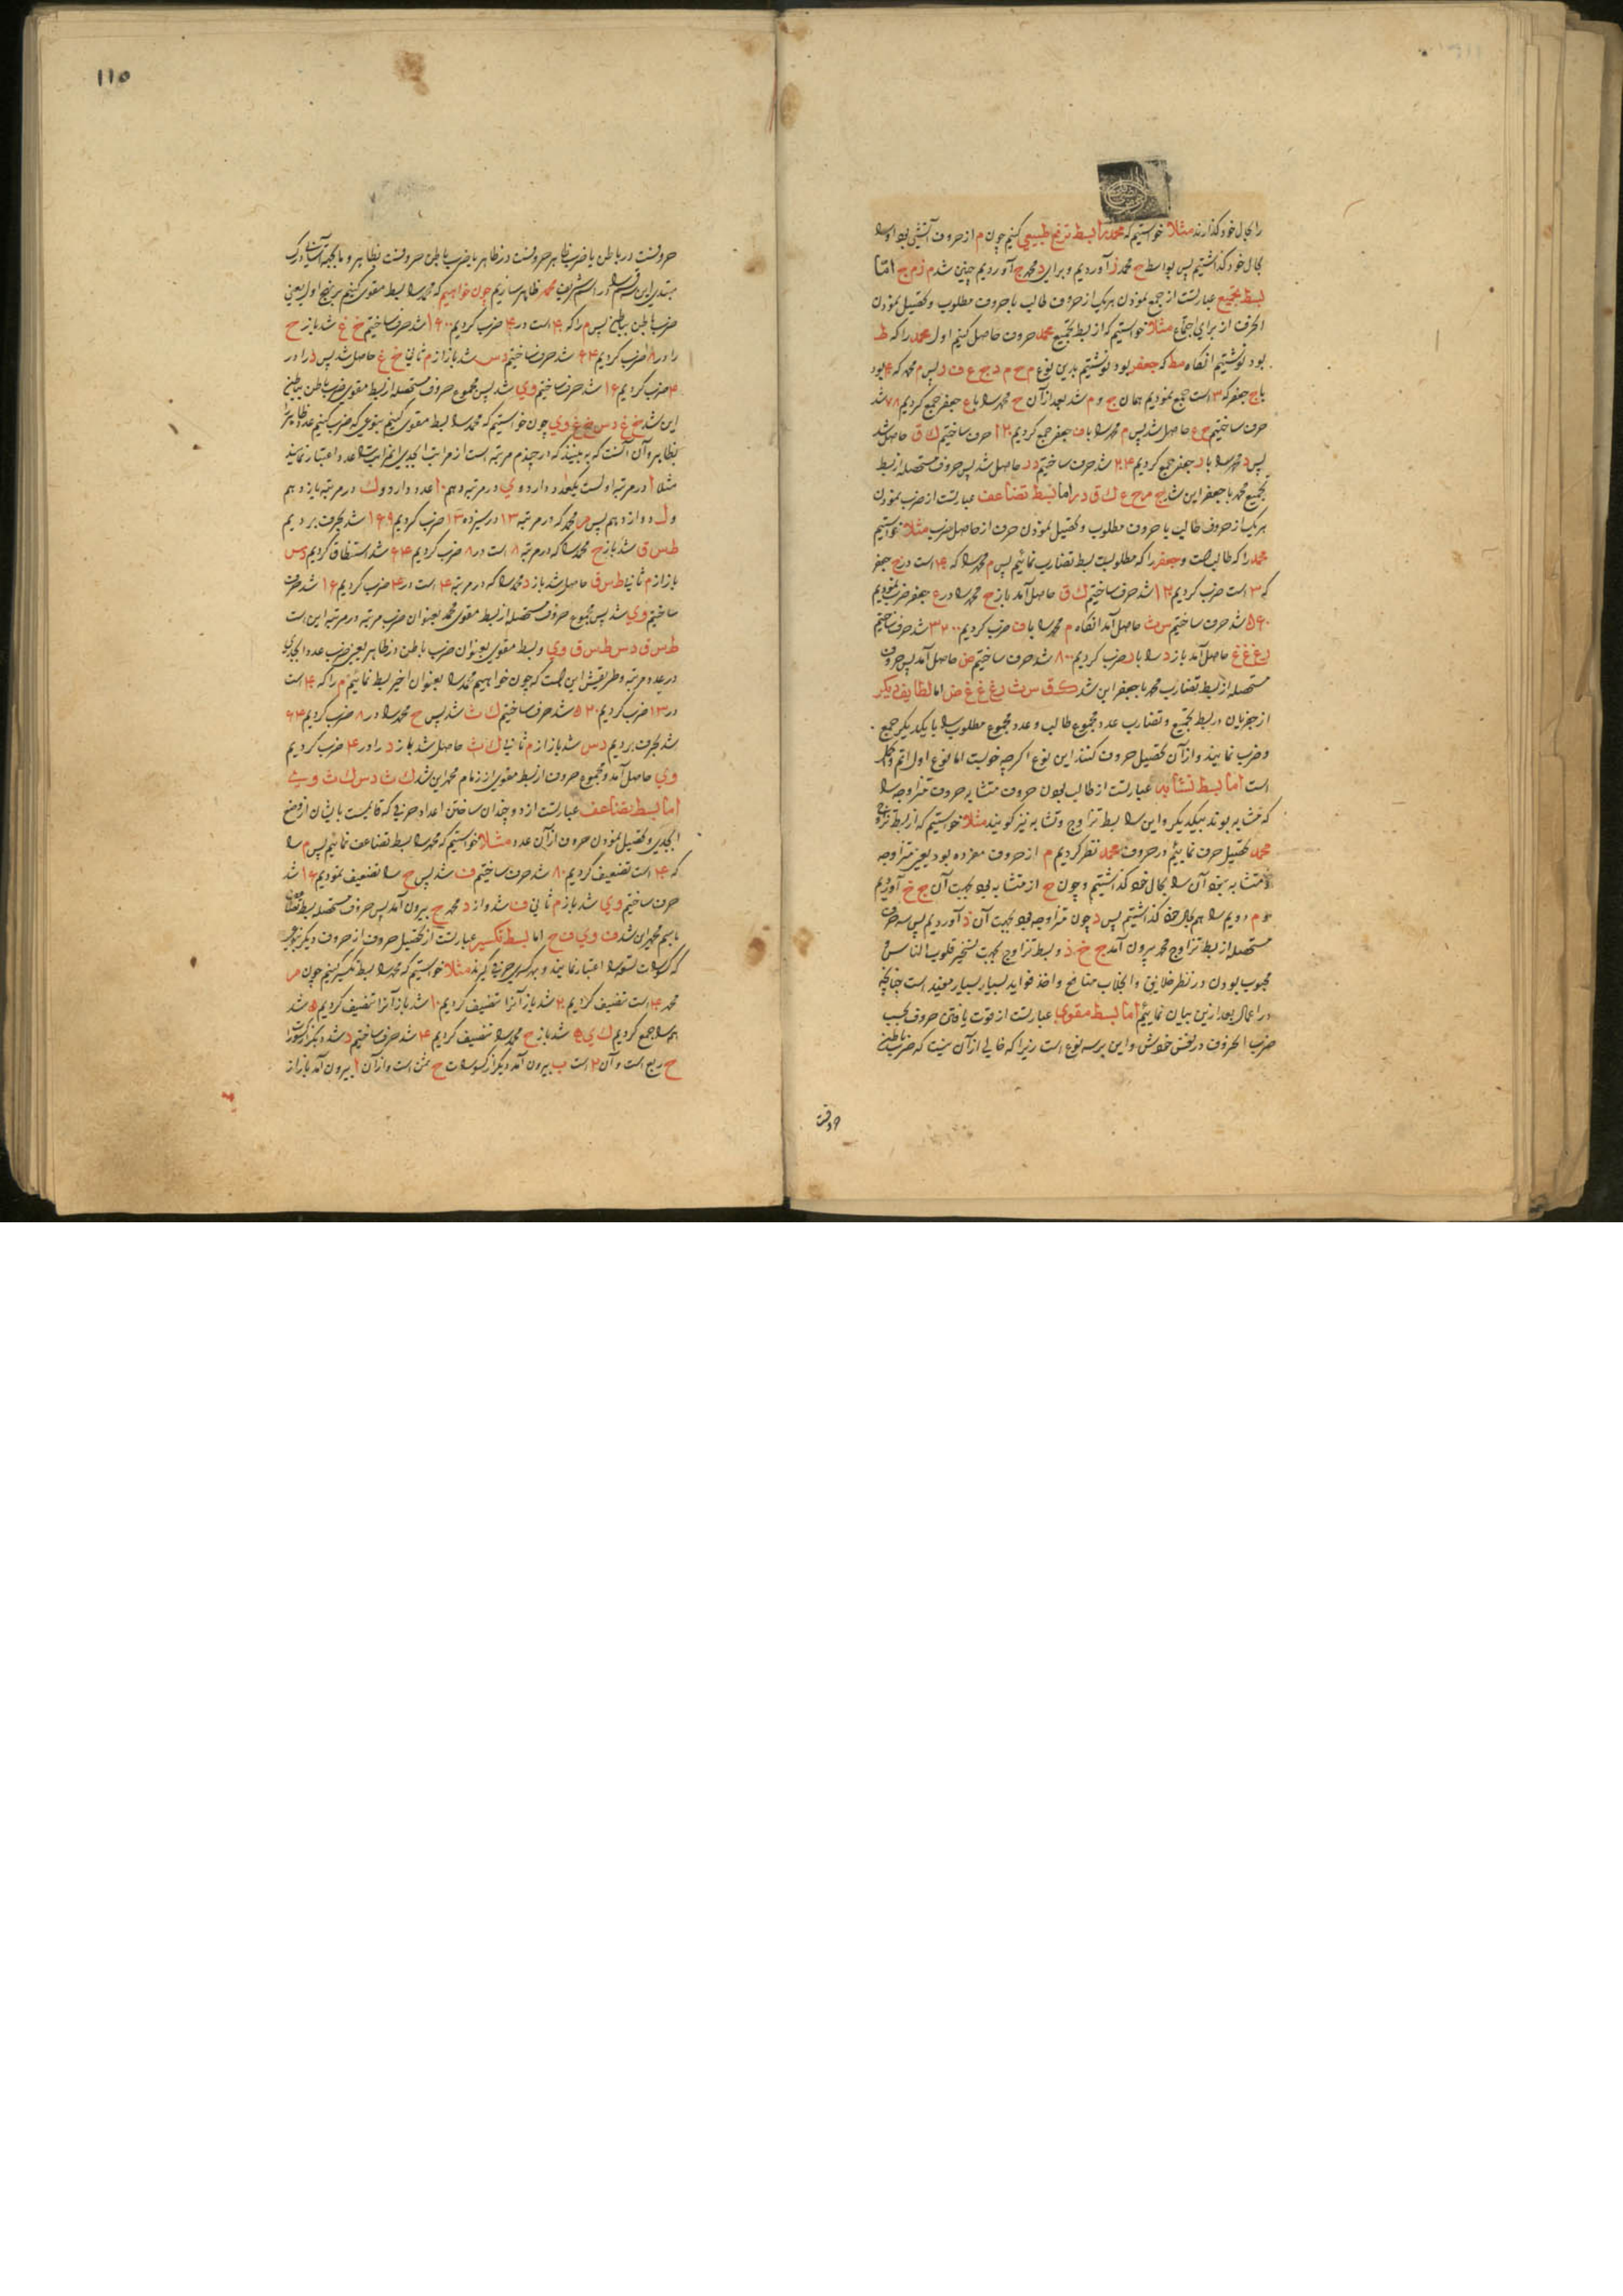 را بحال خود گذارند مثلا خواستیم که محمد را بسط ترفع طبیعی کنیم چون م از حروف آتشی بود او را
بحال خود گذاشتیم پس بواسطه ح محمد ز آوردیم و برای د محمد ج آوردیم چنین شد م ز م ج اما
بسط تجمیع عبارتست از جمع نمودن هریک از حروف طالب با حروف مطلوب و تحصیل نمودن
الحرف از برای اجتماع مثلا خواستیم که از بسط تجمیع محمد حروف حاصل کنیم اول محمد را که ط
بود نوشتیم انگاه مط که جعفر بود نوشتیم بدین نوع م ح م د ج ع ف ر پس م محمد که ۴۰ بود
با ج جعفر که ۳ است جمع نمودیم همان ج و م شد بعد از آن ح محمد را با ع جعفر جمع کردیم ۷۸ شد
حرف ساختیم ح ع حاصل شد پس م محمد را با ف جعفر جمع کردیم ۱۲۰ حرف ساختیم ك ق حاصل شد
پس د محمد را با ر جعفر جمع کردیم ۲۰۴ شد حرف ساختیم د ر حاصل شد پس حروف مستحصله از بسط
تجمیع محمد با جعفر این شد ج م ح ع ك ق د ر اما بسط تضاعف عبارتست از ضرب نمودن
هر یک از حروف طالب با حروف مطلوب و تحصیل نمودن حرف از حاصل ضرب مثلا خواستیم
محمد را که طالبست و جعفر را که مطلوبست بسط تضارب نمائیم پس م محمد را که ۴۰ است در ج جعفر
که ۳ است ضرب کردیم ۱۲۰ شد حرف ساختیم ك ق حاصل آمد باز ح محمد را در ع جعفر ضرب نمودیم
۵۶۰ شد حرف ساختیم س ث حاصل آمد انگاه م محمد را با ف ضرب کردیم ۳۲۰۰ شد حرف ساختیم
ر غ غ غ حاصل آمد باز د را با ر ضرب کردیم ۸۰۰ شد حرف ساختیم ض حاصل آمد پس حروف
مستحصله از بسط تضارب محمد با جعفر این شد ك ق س ث ر غ غ غ ض اما لطایف دیکر
از جفریان در بسط تجمیع و تضارب عدد مجموع طالب و عدد مجموع مطلوب را با یکدیکر جمع
و ضرب نمایند و از آن تحصیل حروف کنند این نوع اکرچه خوبست اما نوع اول اتم و اکمل
است اما بسط تشابه عبارتست از طالب بودن حروف متشابه حروف متزاوجه را
که متشابه بوند بیکدیکر و این را بسط تزاوج و تشابه نیز کویند مثلا خواستیم که از بسط تزاوج
محمد تحصیل حرف نمائیم در حروف محمد نظر کردیم م از حروف مفرده بود یعنی متزاوجه
و متشابه نبود آن را بحال خود گذاشتیم و چون ح از متشابه بود بجهت آن ج خ آوردیم
و م دویم را هم بحال خود گذاشتیم پس د چون متزاوجه بود بجهت آن ذ آوردیم پس سه حرف
مستحصله از بسط تزاوج محمد بیرون آمد ج خ ذ و بسط تزاوج بجهت تسخیر قلوب الناس و
محبوب بودن در نظر خلایق و انجلاب منافع و اخذ فواید بسیار بسیار مفید است چنانچه
در اعمال بعد ازین بیان نمائیم اما بسط مقوی عبارتست از قوت یافتن حروف بحسب
ضرب الحروف در نفس خودش و این بر سه نوع است زیرا که خالی از آن نیست که ضرب باطن
حروفست
۱۱۵
حروفست در باطن یا ضرب ظاهر حروفست در ظاهر یا ضرب باطن حروفست بظاهر و ما بجهة آسانی درک
مبتدی این سه قسم را در اسم شریف محمد ظاهر سازیم چون خواهیم که محمد را بسط مقوی کنیم بر نهج اول یعنی
ضرب باطن بباطن پس م را که ۴۰ است در ۴۰ ضرب کردیم ۱۶۰۰ شد حرف ساختیم خ غ شد باز ح
را در ۸ ضرب کردیم ۶۴ شد حرف ساختیم د س شد باز از م ثانی خ غ حاصل شد پس د را در
۴ ضرب کردیم ۱۶ شد حرف ساختیم و ی شد پس مجموع حروف مستحصله از بسط مقوی ضرب باطن بباطن
این شد خ غ د س خ غ و ی چون خواستیم که محمد را بسط مقوی کنیم بنوعی که ضرب کنیم عدد ظاهر را
بظاهر و آن آنست که به بینند که ار چندم مرتبه است از مراتب ابجدی انمراتب را عدد اعتبار نمایند
مثلا ا در مرتبه اولست یکعدد دارد و ی در مرتبه دهم ۱۰ عدد دارد و ك در مرتبه یازدهم
و ل دوازدهم پس م محمد که در مرتبه ۱۳ در سیزده ۱۳ ضرب کردیم ۱۶۹ شد بحرف بردیم
ط س ق شد باز ح محمد را که در مرتبه ۸ است در ۸ ضرب کردیم ۶۴ شد استنطاق کردیم د س
باز از م ثانی ط س ق حاصل شد باز د محمد را که در مرتبه ۴ است در ۴ ضرب کردیم ۱۶ شد حرف
ساختیم و ی شد پس مجموع حروف مستحصله از بسط مقوی محمد بعنوان ضرب مرتبه در مرتبه این است
ط س ق د س ط س ق و ی و بسط مقوی بعنوان ضرب باطن در ظاهر یعنی ضرب عدد ابجدی
در عدد مرتبه و طریقش این است که چون خواهیم محمد را بعنوان اخیر بسط نمائیم م را که ۴۰ است
در ۱۳ ضرب کردیم ۵۲۰ شد حرف ساختیم ك ث شد پس ح محمد را در ۸ ضرب کردیم ۶۴
شد بحرف بردیم د س شد باز از م ثانیا ك ث حاصل شد باز د را در ۴ ضرب کردیم
و ی حاصل آمد و مجموع حروف از بسط مقوی از زمام محمد این شد ك ث د س ك ث و ی
اما بسط تضاعف عبارتست از دو چندان ساختن اعداد حرفی که قایمست بایشان از وضع
ابجدی و تحصیل نمودن حروف از آن عدد مثلا خواستیم که محمد را بسط تضاعف نمائیم پس م را
که ۴۰ است تضعیف کردیم ۸۰ شد حرف ساختیم ف شد پس ح را تضعیف نمودیم ۱۶ شد
حرف ساختیم و ی شد باز م ثانی ف شد و از د محمد ح بیرون آمد پس حروف مستحصله بسط تضاعف
باسم محمد این شد ف و ی ف ح اما بسط تکسیر عبارتست از تحصیل حروف از حروف دیکر بوجهی
که کسورات تسعه را اعتبار نمایند و بهر کسری حرفی گیرند مثلا خواستیم که محمد را بسط تکسیر کنیم چون م
محمد ۴۰ است تنصیف کردیم ۲۰ شد باز آنرا تنصیف کردیم ۱۰ شد باز آنرا تنصیف کردیم ۵ شد
همه را جمع کردیم ك ی ه شد باز ح محمد را تنصیف کردیم ۴ شد حرف ساختیم د شد دیکر از کسورات
ح ربع است و آن ۲ است ب بیرون آمد دیکر از کسورات ح ثمن است و از آن ا بیرون آمد باز از